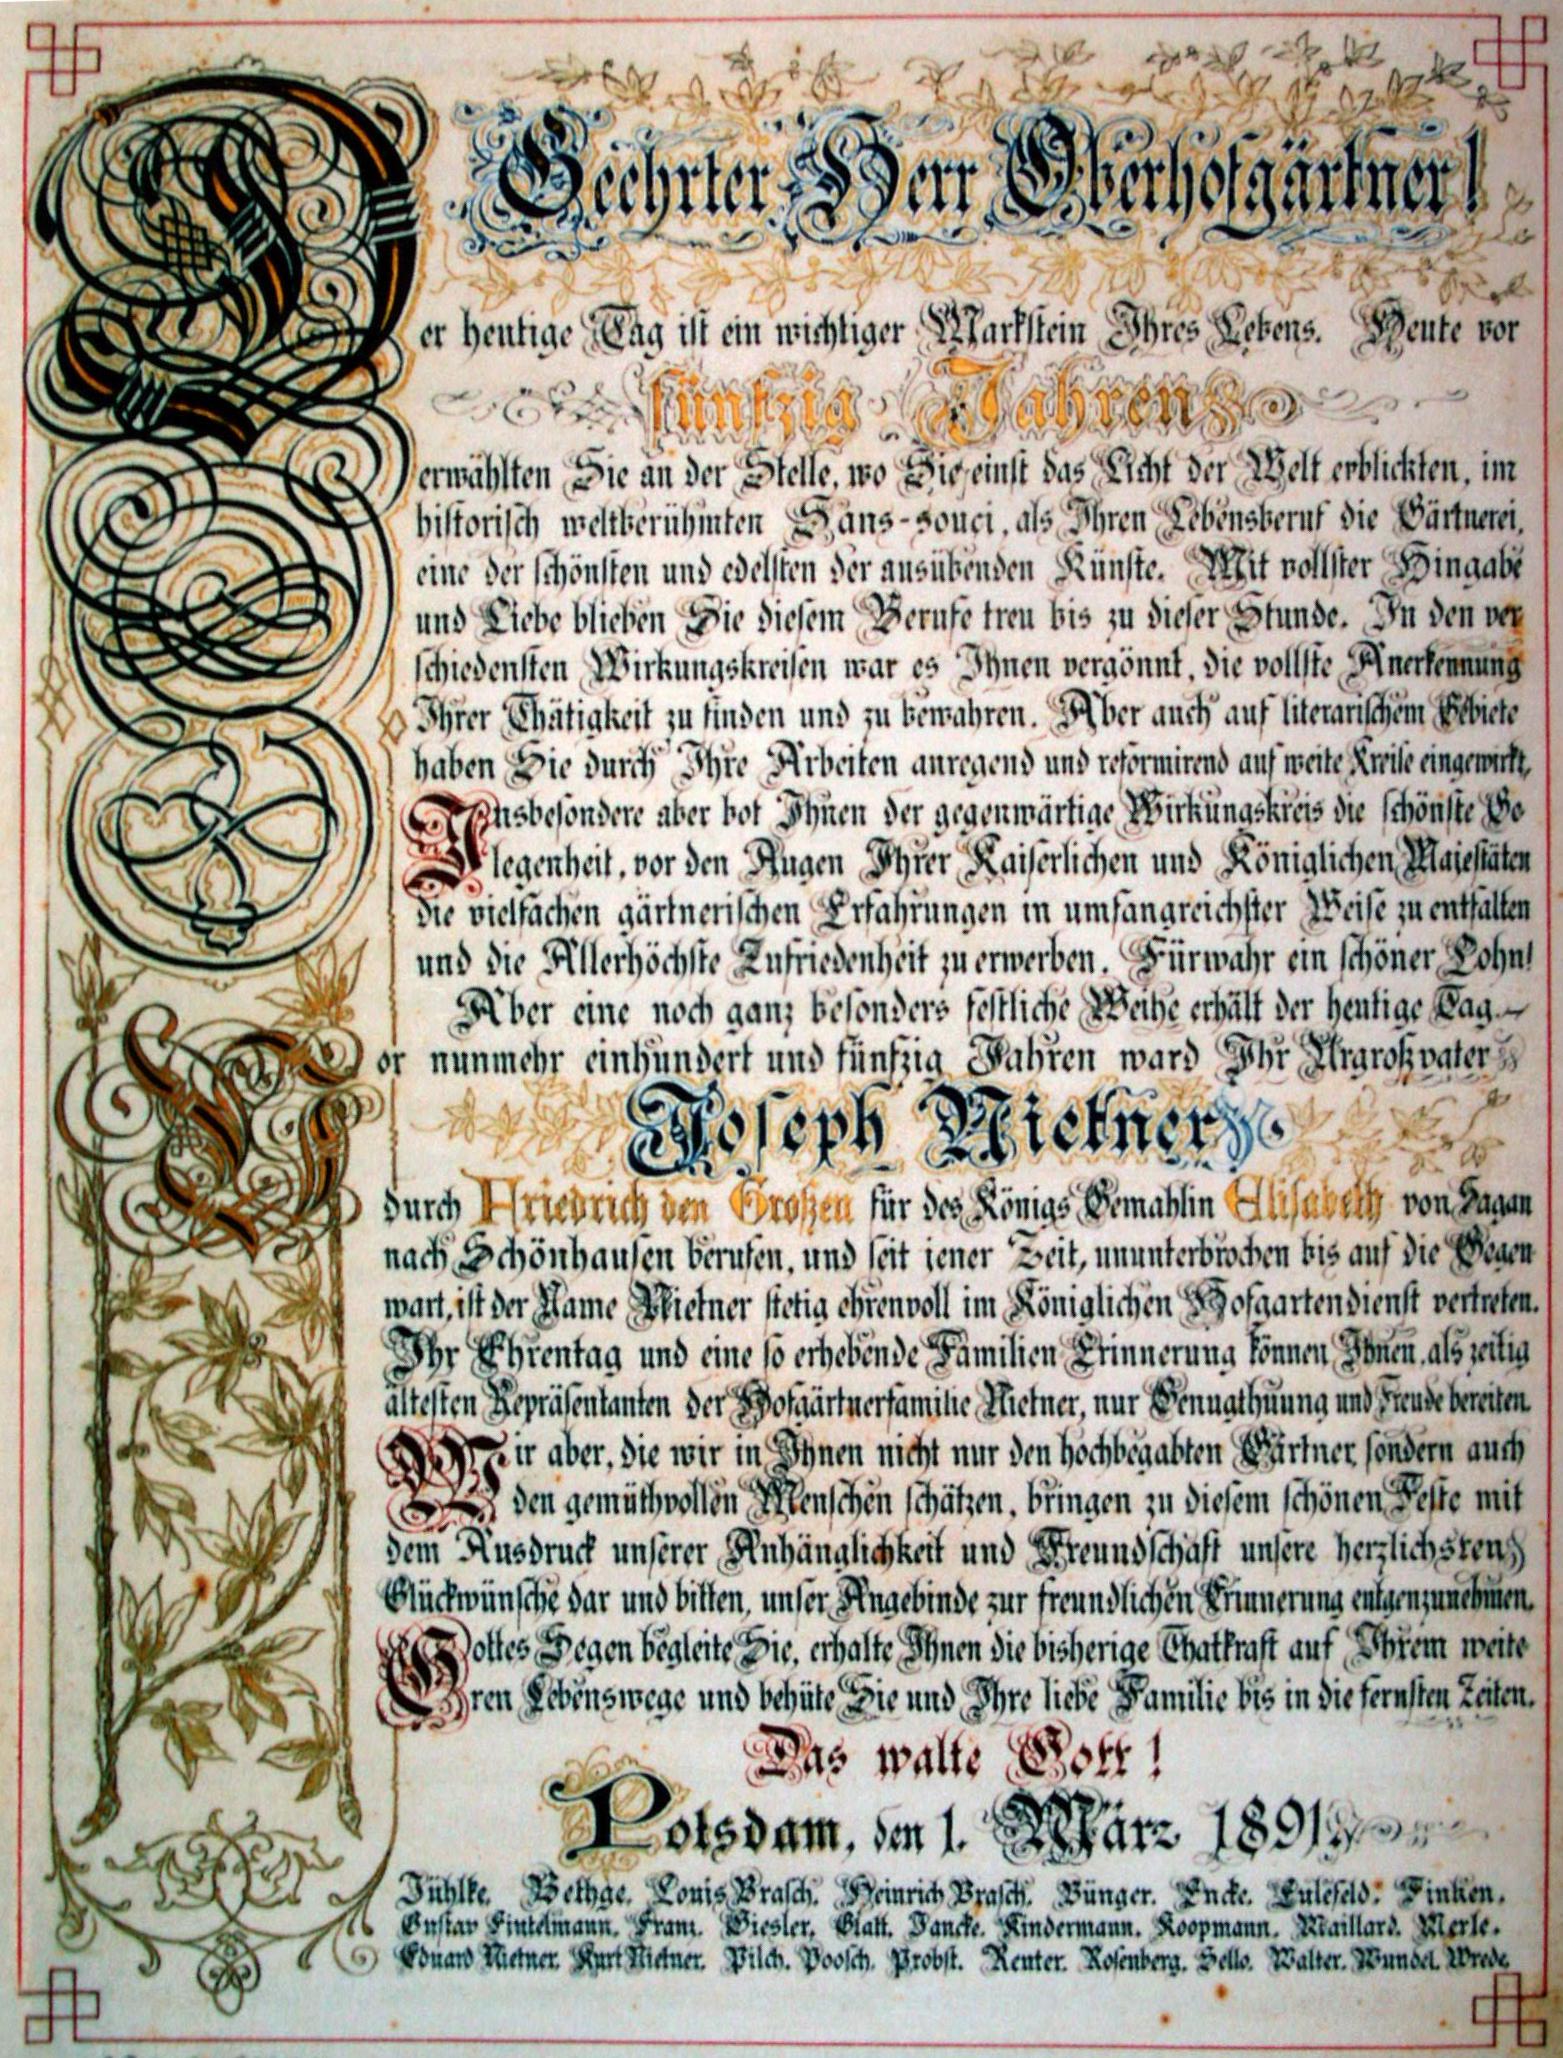 Geehrter Herr Oberhofgärtner!
Der heutige Tag ist ein wichtiger Markstein Ihres Lebens. Heute vor
fünfzig Jahren
erwählten Sie an der Stelle, wo Sie einst das Licht der Welt erblickten, im
historisch weltberühmten Sans-souci, als Ihren Lebensberuf die Gärtnerei,
eine der schönsten und edelsten der ausübenden Künste. Mit vollster Hingabe
und Liebe blieben Sie diesem Berufe treu bis zu dieser Stunde. In den ver
schiedensten Wirkungskreisen war es Ihnen vergönnt, die vollste Anerkennung
Ihrer Thätigkeit zu finden und zu bewahren. Aber auch auf literarischem Gebiete
haben Sie durch Ihre Arbeiten anregend und reformirend auf weite Kreise eingewirkt,
Insbesondere aber bot Ihnen der gegenwärtige Wirkungskreis die schönste Ge
legenheit, vor den Augen Ihrer Kaiserlichen und Königlichen Majestäten
die vielfachen gärtnerischen Erfahrungen in umfangreichster Weise zu entfalten
und die Allerhöchste Zufriedenheit zu erwerben. Fürwahr ein schöner Lohn!
Aber eine noch ganz besonders festliche Weihe erhält der heutige Tag.
Vor nunmehr einhundert und fünfzig Jahren ward Ihr Urgroßvater
Joseph Nietner
durch Friedrich den Großen für des Königs Gemahlin Elisabeth von Sagan
nach Schönhausen berufen, und seit jener Zeit, ununterbrochen bis auf die Gegen
wart, ist der Name Nietner stetig ehrenvoll im Königlichen Hofgartendienst vertreten.
Ihr Ehrentag und eine so erhebende Familien Erinnerung können Ihnen, als zeitig
ältesten Repräsentanten der Hofgärtnerfamilie Nietner, nur Genugthuung und Freude bereiten.
Wir aber, die wir in Ihnen nicht nur den hochbegabten Gärtner, sondern auch
den gemüthvollen Menschen schätzen, bringen zu diesem schönen Feste mit
dem Ausdruck unserer Anhänglichkeit und Freundschaft unsere herzlichsten
Glückwünsche dar und bitten, unser Angebinde zur freundlichen Erinnerung entgenzunehmen.
Gottes Segen begleite Sie, erhalte Ihnen die bisherige Thatkraft auf Ihrem weite
ren Lebenswege und behüte Sie und Ihre liebe Familie bis in die fernsten Zeiten.
Das walte Gott!
Potsdam, den 1. März 1891.
Jühlke. Bethge. Louis Brasch. Heinrich Brasch. Bünger. Encke. Eulefeld. Finken.
Gustav Fintelmann. Franz. Giesler. Glatt. Jancke. Kindermann. Koopmann. Maillard. Merle.
Eduard Nietner. Kurt Nietner. Pilch. Poosch. Probst. Reuter. Rosenberg. Sello. Walter. Wundel. Wrede.